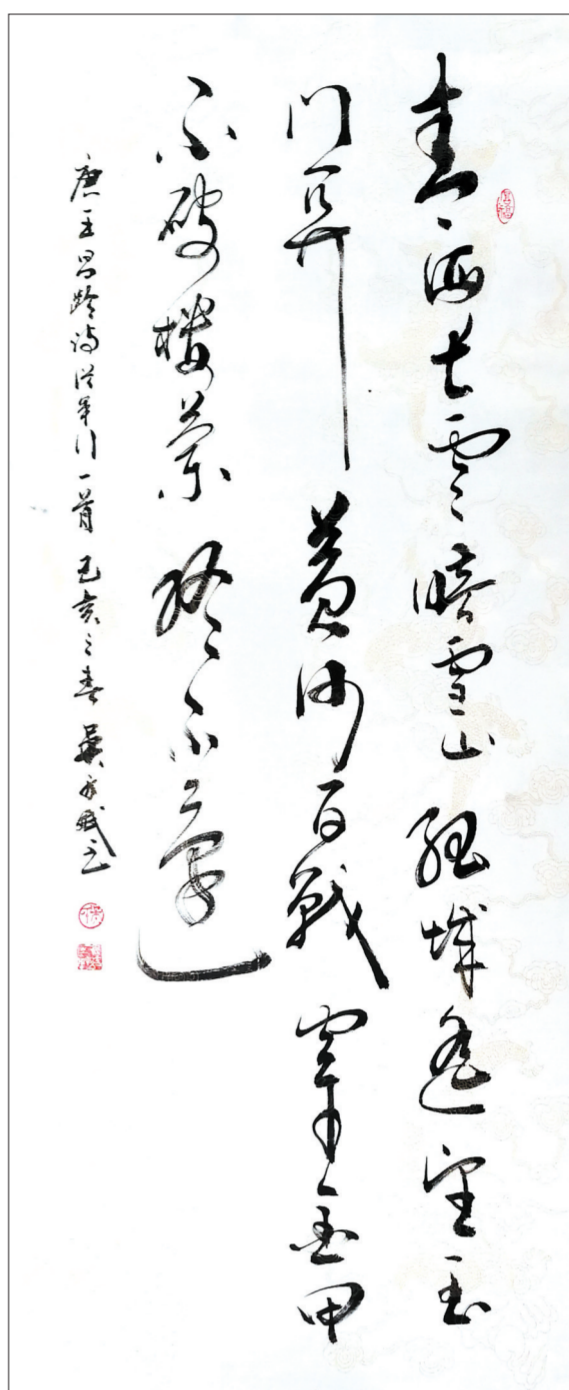 青海長雲暗雪山孤城遥望玉
門關黄沙百戰穿金甲
不破樓蘭終不還
唐王昌齡詩從軍行一首己亥之春